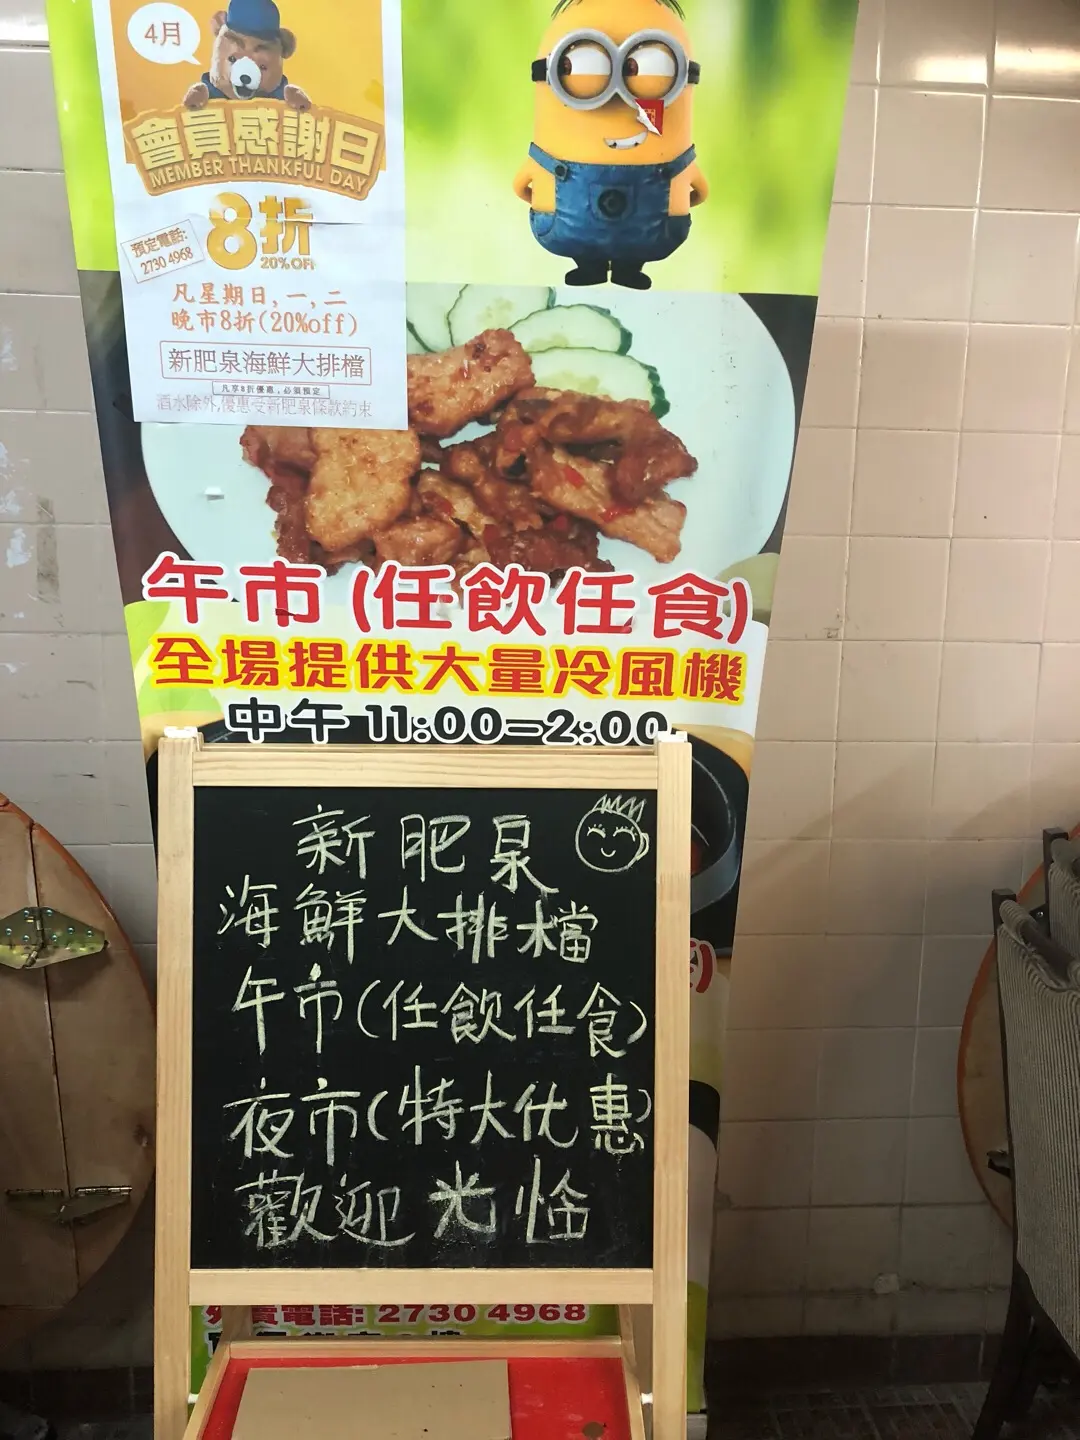 4月
會員感謝日
MEMBER THANKFUL DAY
8折
20%OFF
預定電話:
2730 4968
凡星期日,一,二
晚市8折(20%off)
新肥泉海鮮大排檔
凡享8折優惠,必須預定
酒水除外,優惠受新肥泉條款約束
午市(任飲任食)
全場提供大量冷風機
中午 11:00-2:00
新肥泉
海鮮大排檔
午市(任飲任食)
夜市(特大优惠)
歡迎光临
外賣電話: 2730 4968